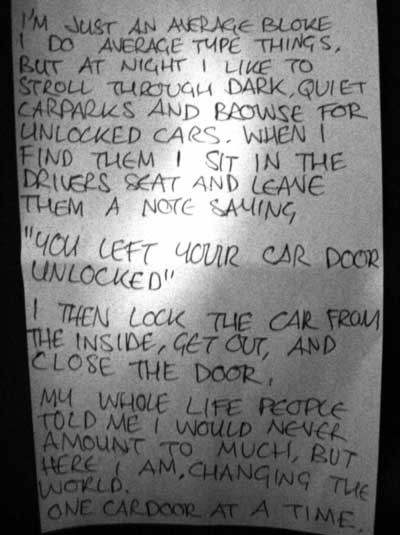 I'M JUST AN AVERAGE BLOKE
I DO AVERAGE TYPE THINGS,
BUT AT NIGHT I LIKE TO
STROLL THROUGH DARK, QUIET
CARPARKS AND BROWSE FOR
UNLOCKED CARS. WHEN I
FIND THEM I SIT IN THE
DRIVERS SEAT AND LEAVE
THEM A NOTE SAYING
"YOU LEFT YOUR CAR DOOR
UNLOCKED"
I THEN LOCK THE CAR FROM
THE INSIDE, GET OUT, AND
CLOSE THE DOOR.
MY WHOLE LIFE PEOPLE
TOLD ME I WOULD NEVER
AMOUNT TO MUCH, BUT
HERE I AM, CHANGING THE
WORLD.
ONE CARDOOR AT A TIME.